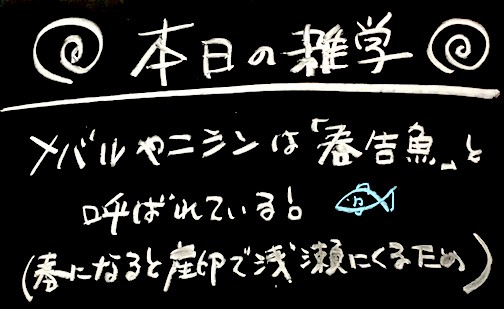 本日の雑学
メバルやニシンは「春告魚」と
呼ばれている!
(春になると産卵で浅瀬にくるため)